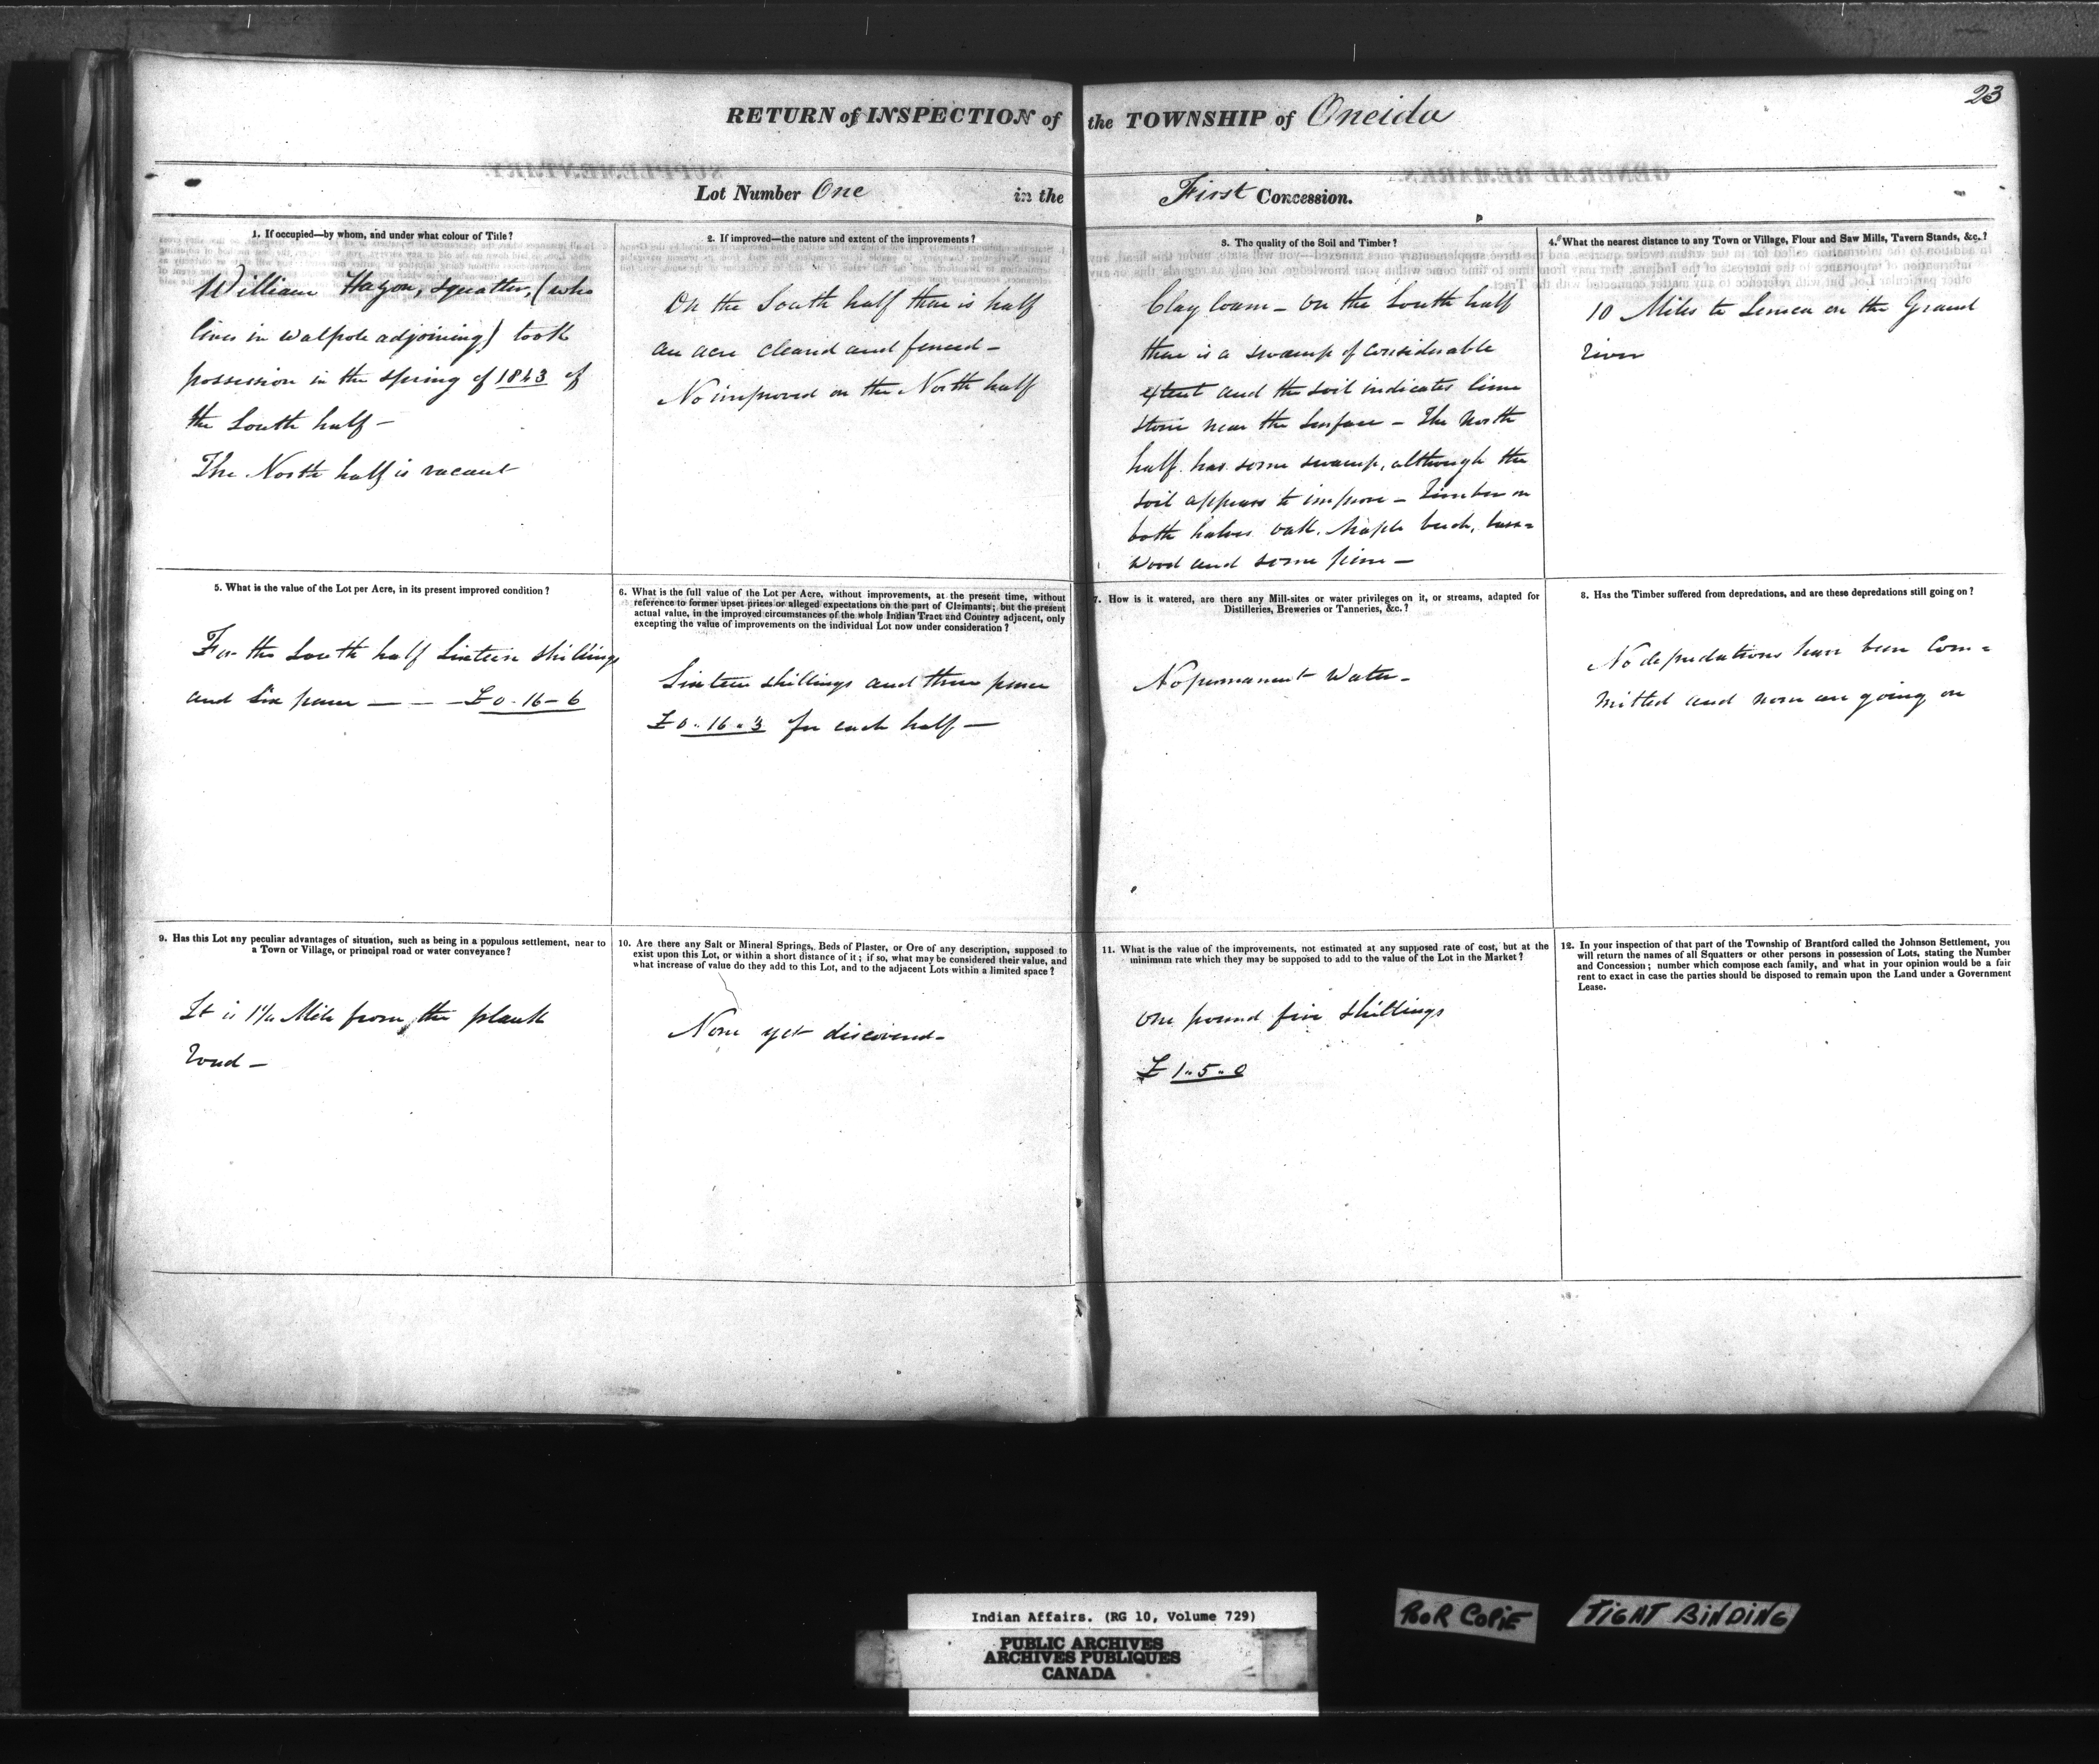 23
RETURN of INSPECTION of the TOWNSHIP of Oneida
Lot Number One in the First Concession.
1. If occupied—by whom, and under what colour of Title?
William Hazon, Squatter, (who
lives in Walpole adjoining) took
possession in the spring of 1843 of
the South half—
The North half is vacant
2. If improved—the nature and extent of the improvements?
On the South half there is half
an acre cleared and fenced—
No improved on the North half
3. The quality of the Soil and Timber?
Clay loam— On the South half
there is a swamp of considerable
extent and the soil indicates lime
stone near the surface — The North
half has some swamp, although the
soil appears to improve — Timber on
both halves oak, Maple beech, bass=
wood and some pine—
4. What the nearest distance to any Town or Village, Flour and Saw Mills, Tavern Stands, &c.?
10 Miles to Seneca on the Grand
River
5. What is the value of the Lot per Acre, in its present improved condition?
For the South half Sixteen Shillings
and Six pence — - —£0-16-6
6. What is the full value of the Lot per Acre, without improvements, at the present time, without
reference to former upset prices or alleged expectations on the part of Claimants; but the present
actual value, in the improved circumstances of the whole Indian Tract and Country adjacent, only
excepting the value of improvements on the individual Lot now under consideration?
Sixteen shillings and three pence
£0..16..3 for each half—
7. How is it watered, are there any Mill-sites or water privileges on it, or streams, adapted for
Distilleries, Breweries or Tanneries, &c.?
No permanent Water—
8. Has the Timber suffered from depredations, and are these depredations still going on?
No depredations have been Com=
mitted and none are going on
9. Has this Lot any peculiar advantages of situation, such as being in a populous settlement, near to
a Town or Village, or principal road or water conveyance?
It is 1¼ Mile from the plank
Road—
10. Are there any Salt or Mineral Springs, Beds of Plaster, or Ore of any description, supposed to
exist upon this Lot, or within a short distance of it; if so, what may be considered their value, and
what increase of value do they add to this Lot, and to the adjacent Lots within a limited space?
None yet discovered—
11. What is the value of the improvements, not estimated at any supposed rate of cost, but at the
minimum rate which they may be supposed to add to the value of the Lot in the Market?
One pound five shillings
£1..5..0
12. In your inspection of that part of the Township of Brantford called the Johnson Settlement, you
will return the names of all Squatters or other persons in possession of Lots, stating the Number
and Concession; number which compose each family, and what in your opinion would be a fair
rent to exact in case the parties should be disposed to remain upon the Land under a Government
Lease.
Indian Affairs. (RG 10, Volume 729)
PUBLIC ARCHIVES
ARCHIVES PUBLIQUES
CANADA
POOR COPIE
TIGHT BINDING